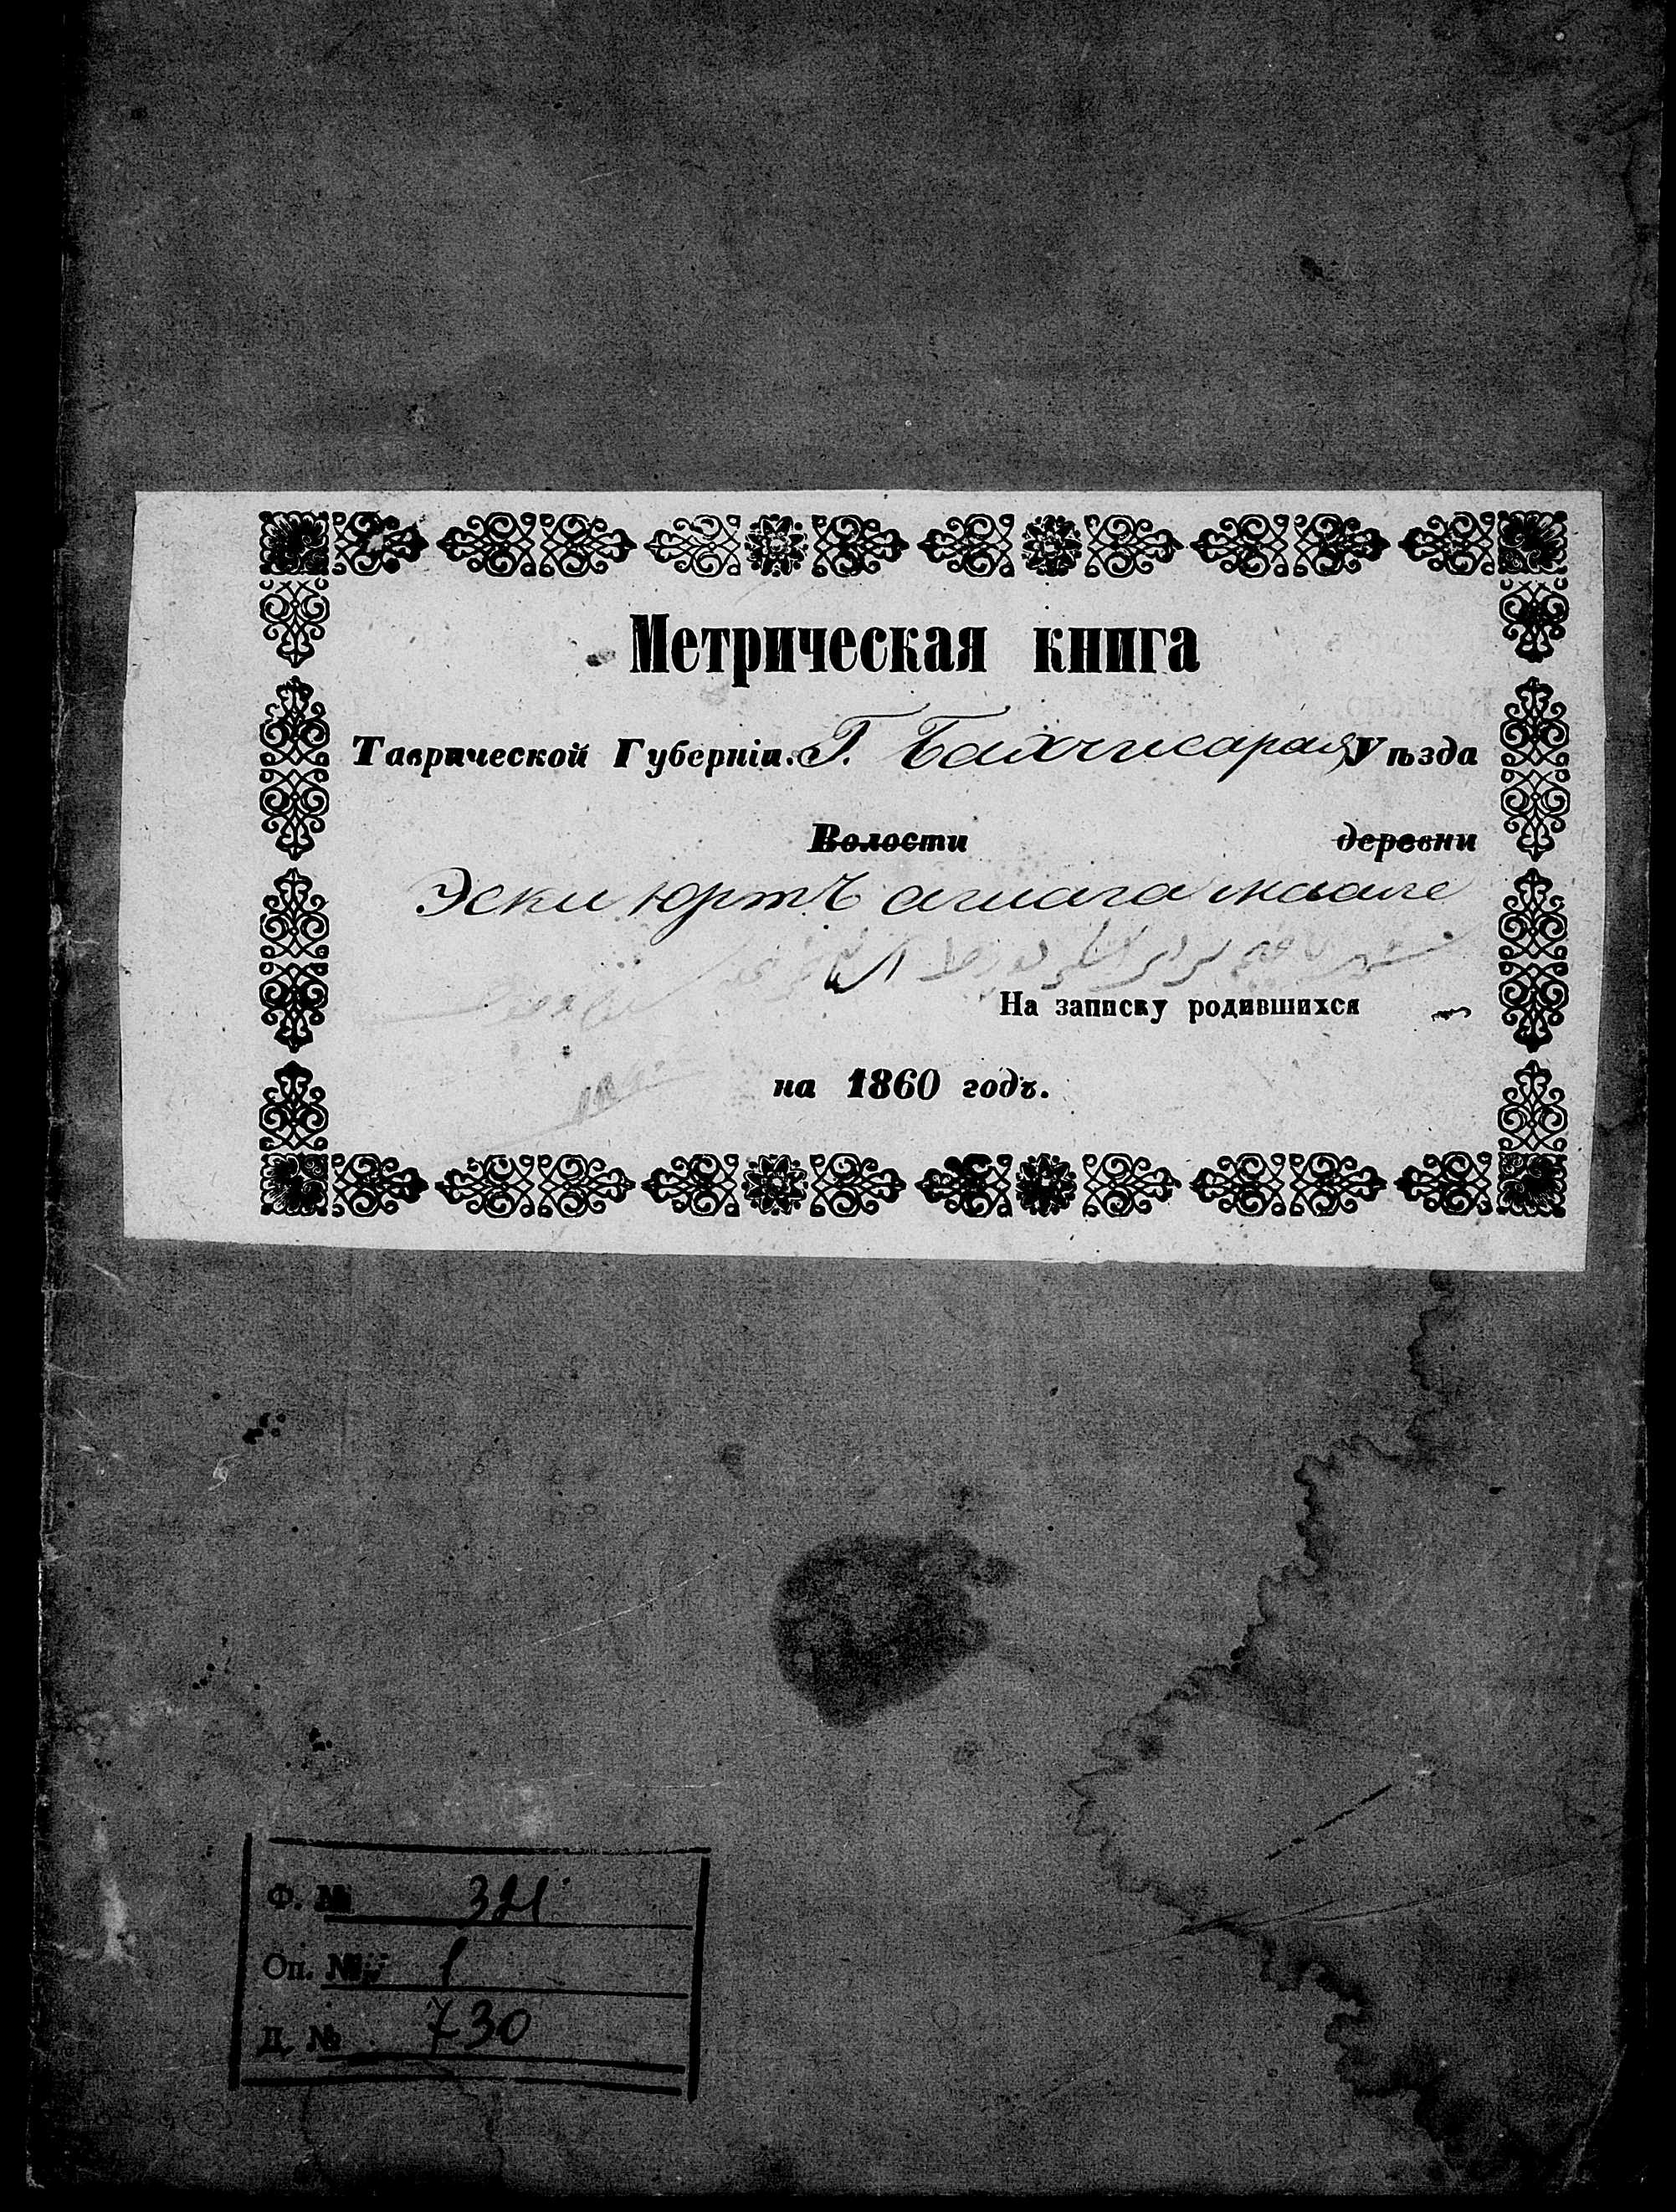 Метрическая книга
Таврической Губерніи. Г. Бахчисарая Уѣзда
Волости деревни
Эски юртъ ашага маале
شهر باغچه سراى اسكى يورط
На записку родившихся
на 1860 годъ.
Ф. № 321
Оп. № 1
Д. № 730